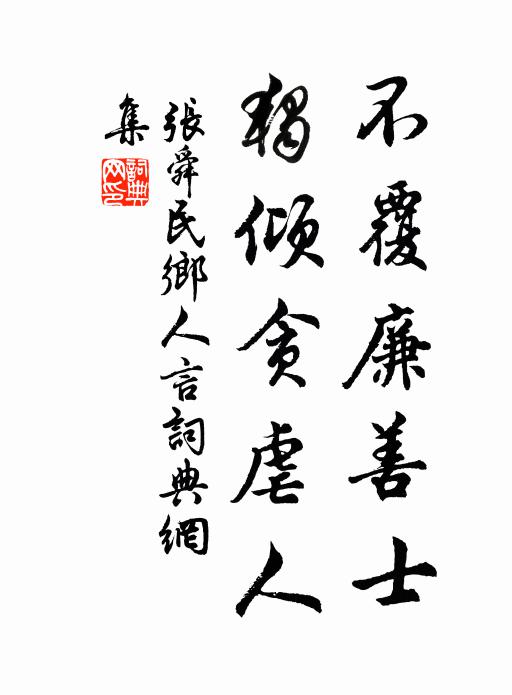 不覆廉善士
獨傾貪虐人
張舜民鄉人言詞典網
集
詞典網印